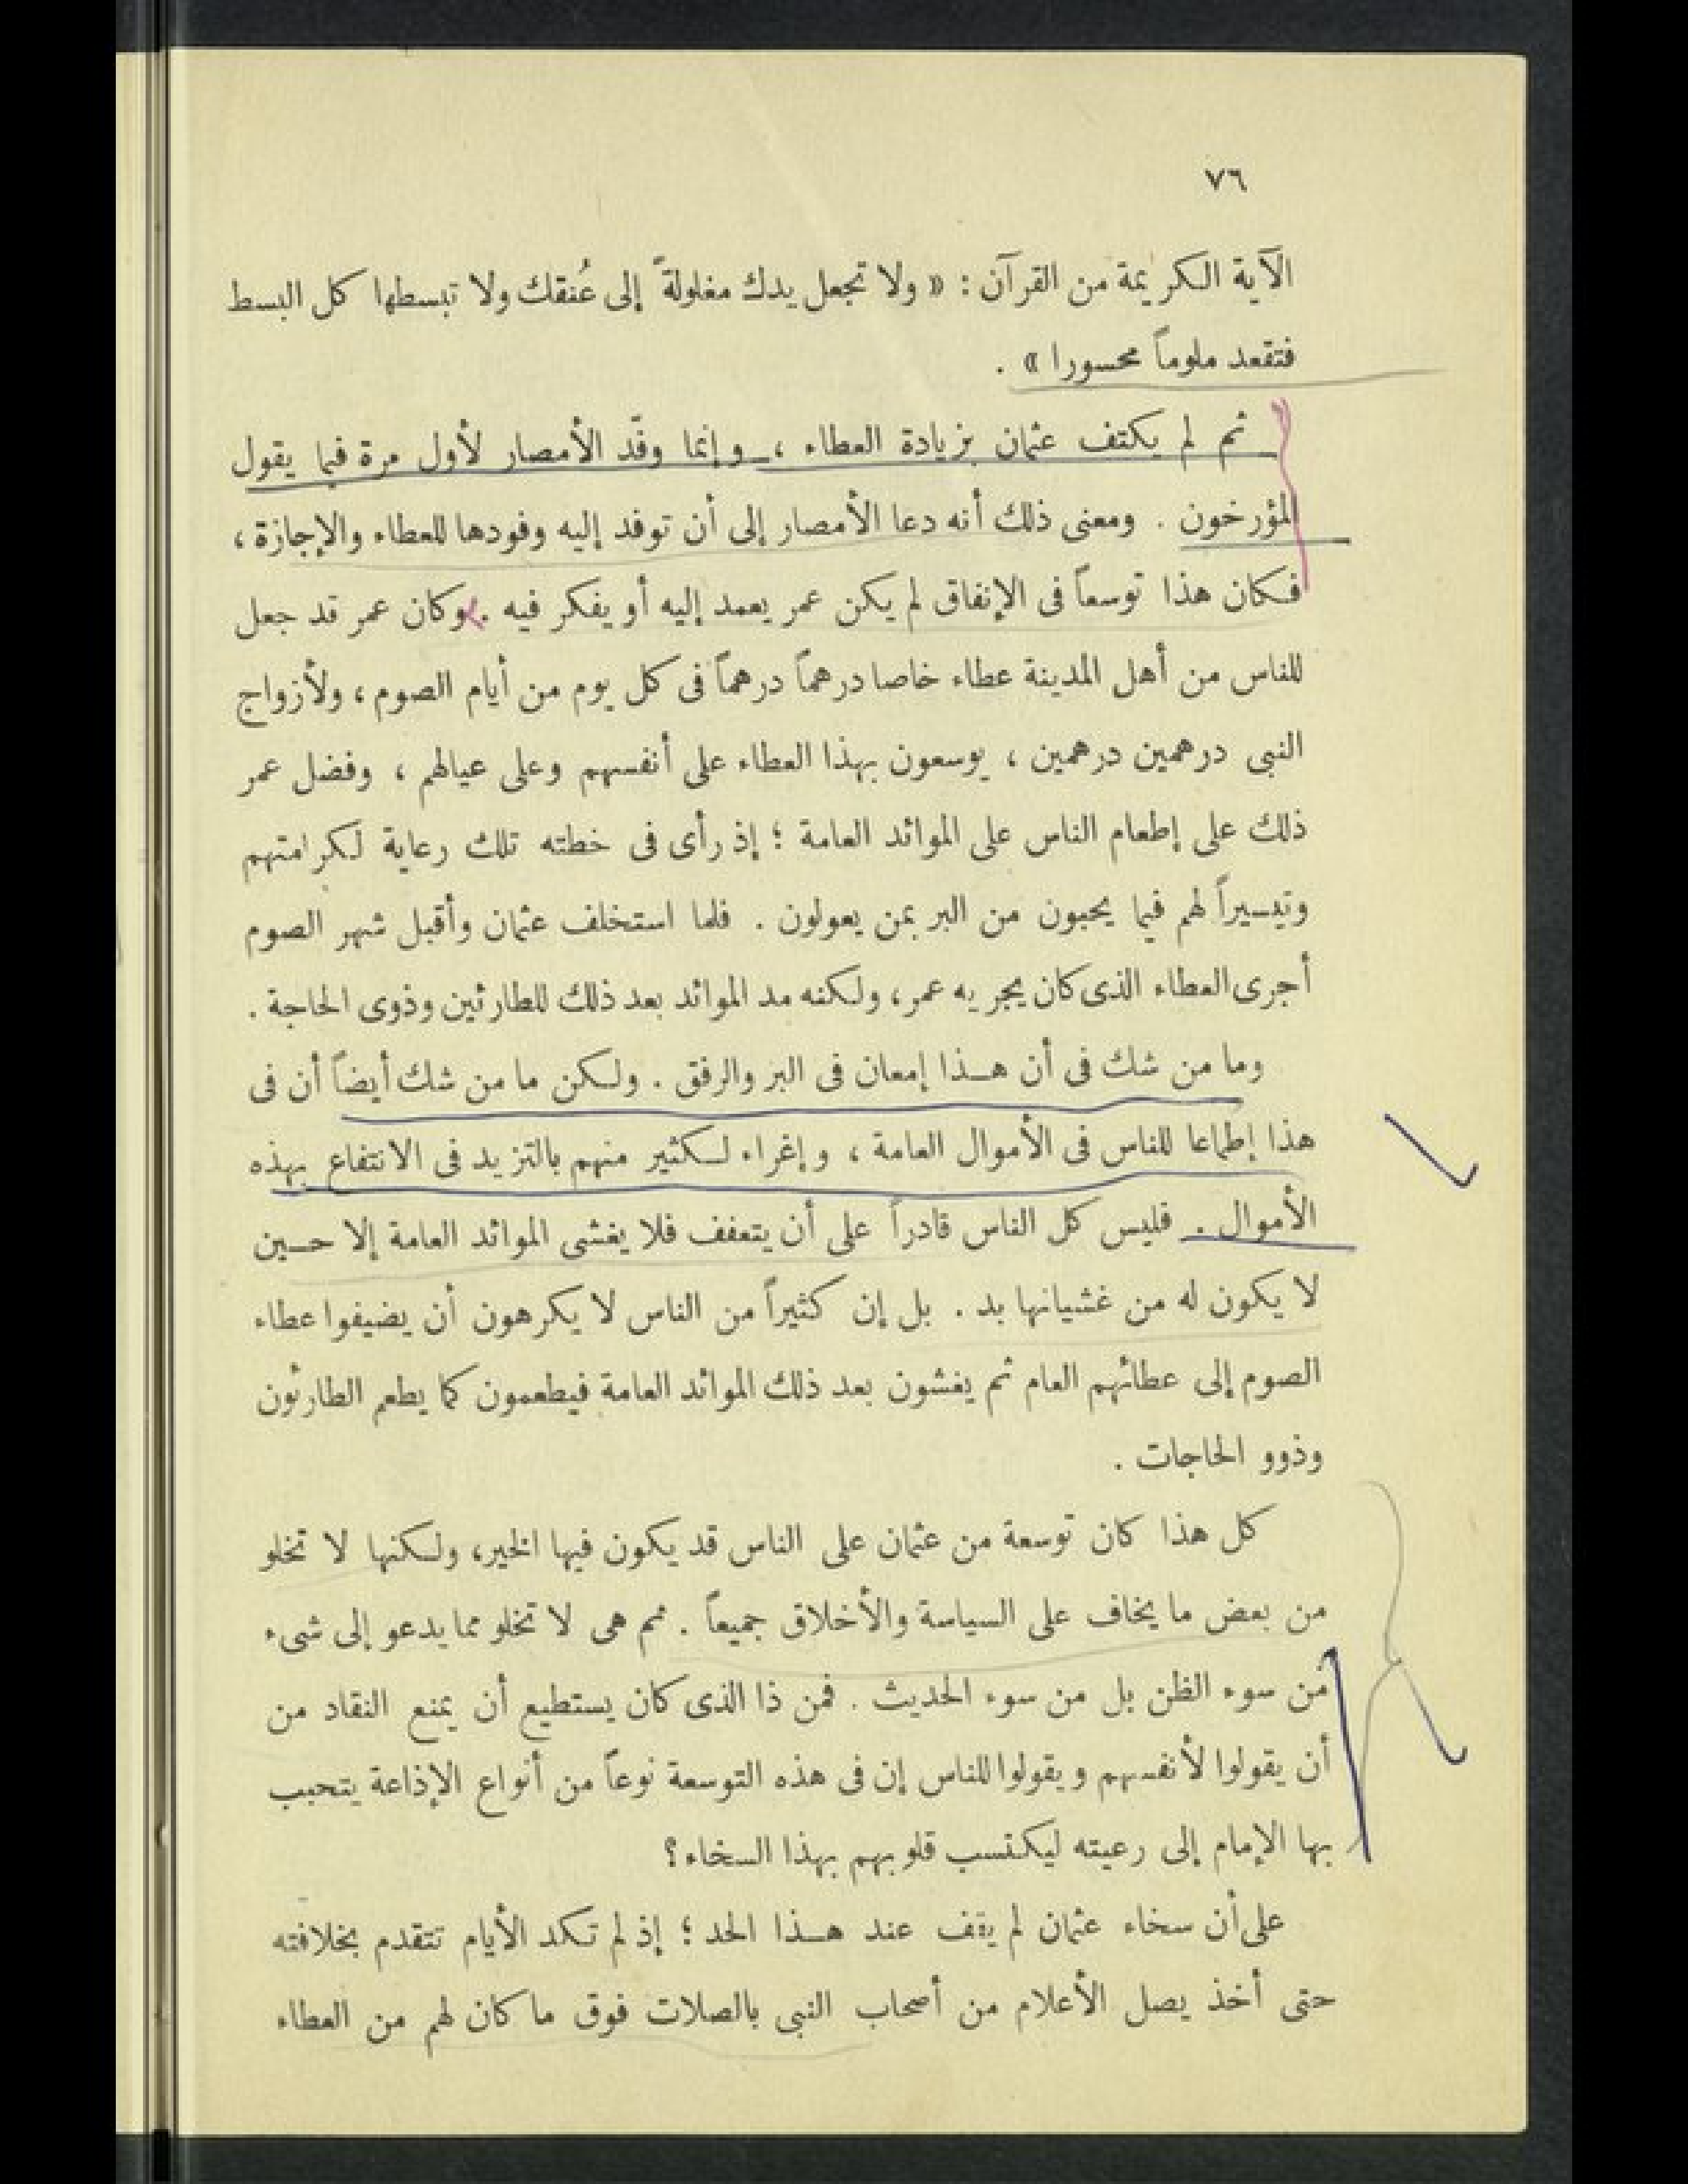 ٧٦
الآية الكريمة من القرآن : « ولا تجعل يدك مغلولةً إلى عُنقك ولا تبسطها كل البسط
فتقعد ملوماً محسورا » .
ثم لم يكتف عثمان بزيادة العطاء ، وإنما وفّد الأمصار لأول مرة فيما يقول
المؤرخون . ومعنى ذلك أنه دعا الأمصار إلى أن توفد إليه وفودها للعطاء والإجازة ،
فكان هذا توسعاً فى الإنفاق لم يكن عمر يعمد إليه أو يفكر فيه . وكان عمر قد جعل
للناس من أهل المدينة عطاء خاصا درهماً درهماً فى كل يوم من أيام الصوم ، ولأزواج
النبى درهمين درهمين ، يوسعون بهذا العطاء على أنفسهم وعلى عيالهم ، وفضل عمر
ذلك على إطعام الناس على الموائد العامة ؛ إذ رأى فى خطته تلك رعاية لكرامتهم
وتيسيراً لهم فيما يحبون من البر بمن يعولون . فلما استخلف عثمان وأقبل شهر الصوم
أجرى العطاء الذى كان يجريه عمر ، ولكنه مد الموائد بعد ذلك للطارئين وذوى الحاجة .
وما من شك فى أن هذا إمعان فى البر والرفق . ولكن ما من شك أيضاً أن فى
هذا إطماعا للناس فى الأموال العامة ، وإغراء لكثير منهم بالتزيد فى الانتفاع بهذه
الأموال . فليس كل الناس قادراً على أن يتعفف فلا يغشى الموائد العامة إلا حين
لا يكون له من غشيانها بد . بل إن كثيراً من الناس لا يكرهون أن يضيفوا عطاء
الصوم إلى عطائهم العام ثم يغشون بعد ذلك الموائد العامة فيطعمون كما يطعم الطارئون
وذوو الحاجات .
كل هذا كان توسعة من عثمان على الناس قد يكون فيها الخير ، ولكنها لا تخلو
من بعض ما يخاف على السياسة والأخلاق جميعاً . ثم هى لا تخلو مما يدعو إلى شىء
من سوء الظن بل من سوء الحديث . فمن ذا الذى كان يستطيع أن يمنع النقاد من
أن يقولوا لأنفسهم ويقولوا للناس إن فى هذه التوسعة نوعاً من أنواع الإذاعة يتحبب
بها الإمام إلى رعيته ليكتسب قلوبهم بهذا السخاء ؟
على أن سخاء عثمان لم يقف عند هذا الحد ؛ إذ لم تكد الأيام تتقدم بخلافته
حتى أخذ يصل الأعلام من أصحاب النبى بالصلات فوق ما كان لهم من العطاء